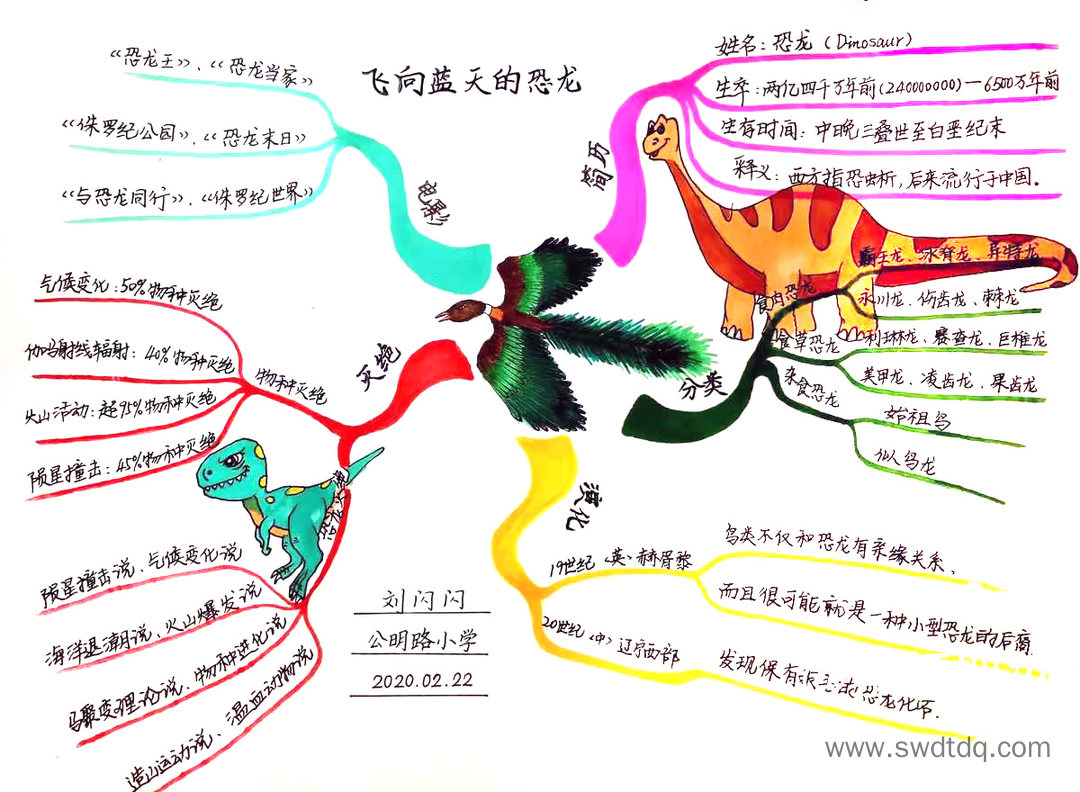 飞向蓝天的恐龙
简历
姓名：恐龙（Dinosaur）
生卒：两亿四千万年前(240000000)—6500万年前
生存时间：中晚三叠世至白垩纪末
释义：西方指恐虫析，后来流行于中国。
分类
食肉恐龙
霸王龙、冰脊龙、异特龙
永川龙、伤齿龙、棘龙
食草恐龙
利玛琳龙、赛查龙、巨椎龙
美甲龙、凌齿龙、果齿龙
杂食恐龙
始祖鸟
似鸟龙
演化
19世纪（英）·赫胥黎
鸟类不仅和恐龙有亲缘关系，
而且很可能就是一种小型恐龙的后裔.
20世纪（中）辽宁西部
发现保有
恐龙化石.
灭绝
物种灭绝
气候变化：50%物种灭绝
伽玛射线辐射：40%物种灭绝
火山活动：超95%物种灭绝
陨星撞击：45%物种灭绝
恐龙灭绝
陨星撞击说、气候变化说
海洋退潮说、火山爆发说
理论说、物种进化说
造山运动说、温血动物说
电影
《恐龙王》、《恐龙当家》
《侏罗纪公园》、《恐龙末日》
《与恐龙同行》、《侏罗纪世界》
刘闪闪
公明路小学
2020.02.22
www.swdtdq.com